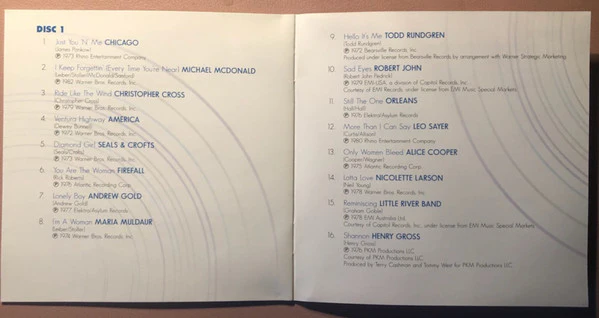 DISC 1
1. Just You 'N' Me CHICAGO
(James Pankow)
℗ 1973 Rhino Entertainment Company
2. I Keep Forgettin' (Every Time You're Near) MICHAEL MCDONALD
(Leiber/Stoller/McDonald/Sanford)
℗ 1982 Warner Bros. Records Inc.
3. Ride Like The Wind CHRISTOPHER CROSS
(Christopher Cross)
℗ 1979 Warner Bros. Records Inc.
4. Ventura Highway AMERICA
(Dewey Bunnell)
℗ 1972 Warner Bros. Records Inc.
5. Diamond Girl SEALS & CROFTS
(Seals/Crofts)
℗ 1973 Warner Bros. Records Inc.
6. You Are The Woman FIREFALL
(Rick Roberts)
℗ 1976 Atlantic Recording Corp.
7. Lonely Boy ANDREW GOLD
(Andrew Gold)
℗ 1977 Elektra/Asylum Records
8. I'm A Woman MARIA MULDAUR
(Leiber/Stoller)
℗ 1974 Warner Bros. Records Inc.
9. Hello It's Me TODD RUNDGREN
(Todd Rundgren)
℗ 1972 Bearsville Records Inc.
Produced under license from Bearsville Records by arrangement with Warner Strategic Marketing
10. Sad Eyes ROBERT JOHN
(Robert John Pedrick)
℗ 1979 EMI-USA, a division of Capitol Records, Inc.
Courtesy of EMI Records, under license from EMI Music Special Markets
11. Still The One ORLEANS
(Hall/Hall)
℗ 1976 Elektra/Asylum Records
12. More Than I Can Say LEO SAYER
(Curtis/Allison)
℗ 1980 Rhino Entertainment Company
13. Only Women Bleed ALICE COOPER
(Cooper/Wagner)
℗ 1975 Atlantic Recording Corp.
14. Lotta Love NICOLETTE LARSON
(Neil Young)
℗ 1978 Warner Bros. Records Inc.
15. Reminiscing LITTLE RIVER BAND
(Graham Goble)
℗ 1978 EMI Australia Ltd.
Courtesy of Capitol Records, Inc. under license from EMI Music Special Markets
16. Shannon HENRY GROSS
(Henry Gross)
℗ 1976 PKM Productions LLC
Courtesy of PKM Productions LLC
Produced by Terry Cashman and Tommy West for PKM Productions LLC